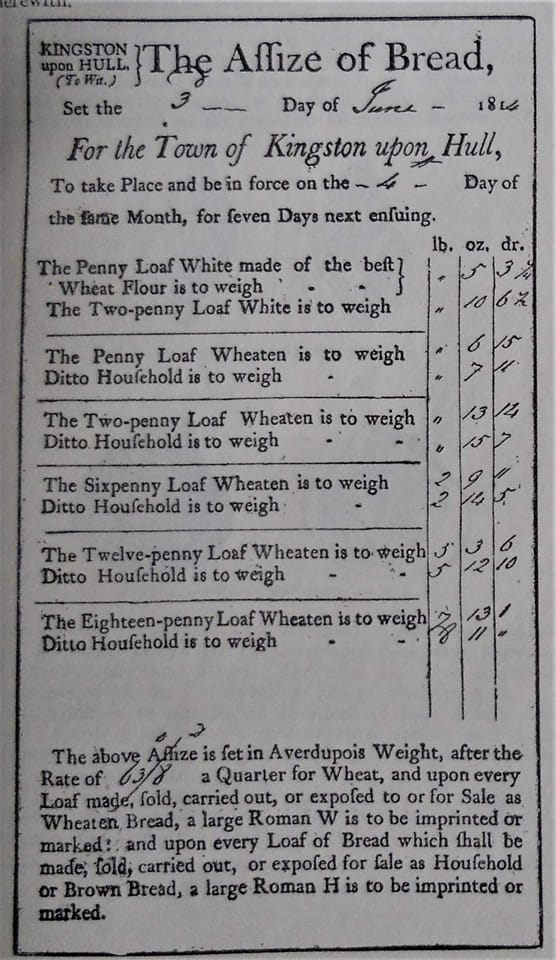 KINGSTON
upon HULL.
(To Wit.)
The Aſſize of Bread,
Set the 3 Day of June 1814
For the Town of Kingston upon Hull,
To take Place and be in force on the 4 Day of
the ſame Month, for ſeven Days next enſuing.
lb. oz. dr.
The Penny Loaf White made of the beſt
Wheat Flour is to weigh - - " 5 3
The Two-penny Loaf White is to weigh " 10 6
The Penny Loaf Wheaten is to weigh " 6 15
Ditto Houſehold is to weigh - " 7
The Two-penny Loaf Wheaten is to weigh " 13 14
Ditto Houſehold is to weigh - - " 15 7
The Sixpenny Loaf Wheaten is to weigh 2 9 "
Ditto Houſehold is to weigh - 2 14 5
The Twelve-penny Loaf Wheaten is to weigh 5 3 6
Ditto Houſehold is to weigh - - 5 12 10
The Eighteen-penny Loaf Wheaten is to weigh 7 13 1
Ditto Houſehold is to weigh - - 8 11 "
The above Aſſize is ſet in Averdupois Weight, after the
Rate of 63/8 a Quarter for Wheat, and upon every
Loaf made, ſold, carried out, or expoſed to or for Sale as
Wheaten Bread, a large Roman W is to be imprinted or
marked: and upon every Loaf of Bread which ſhall be
made, ſold, carried out, or expoſed for ſale as Houſehold
or Brown Bread, a large Roman H is to be imprinted or
marked.